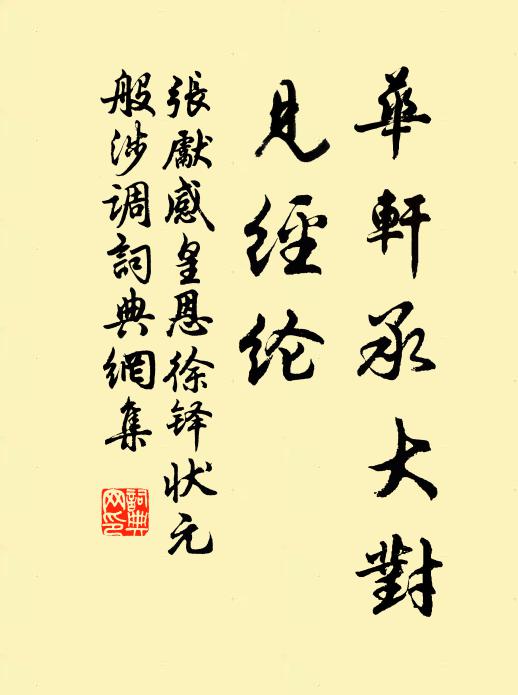 華軒承大對
見經纶
張獻感皇恩徐铎状元
般涉调詞典網集
詞典网印